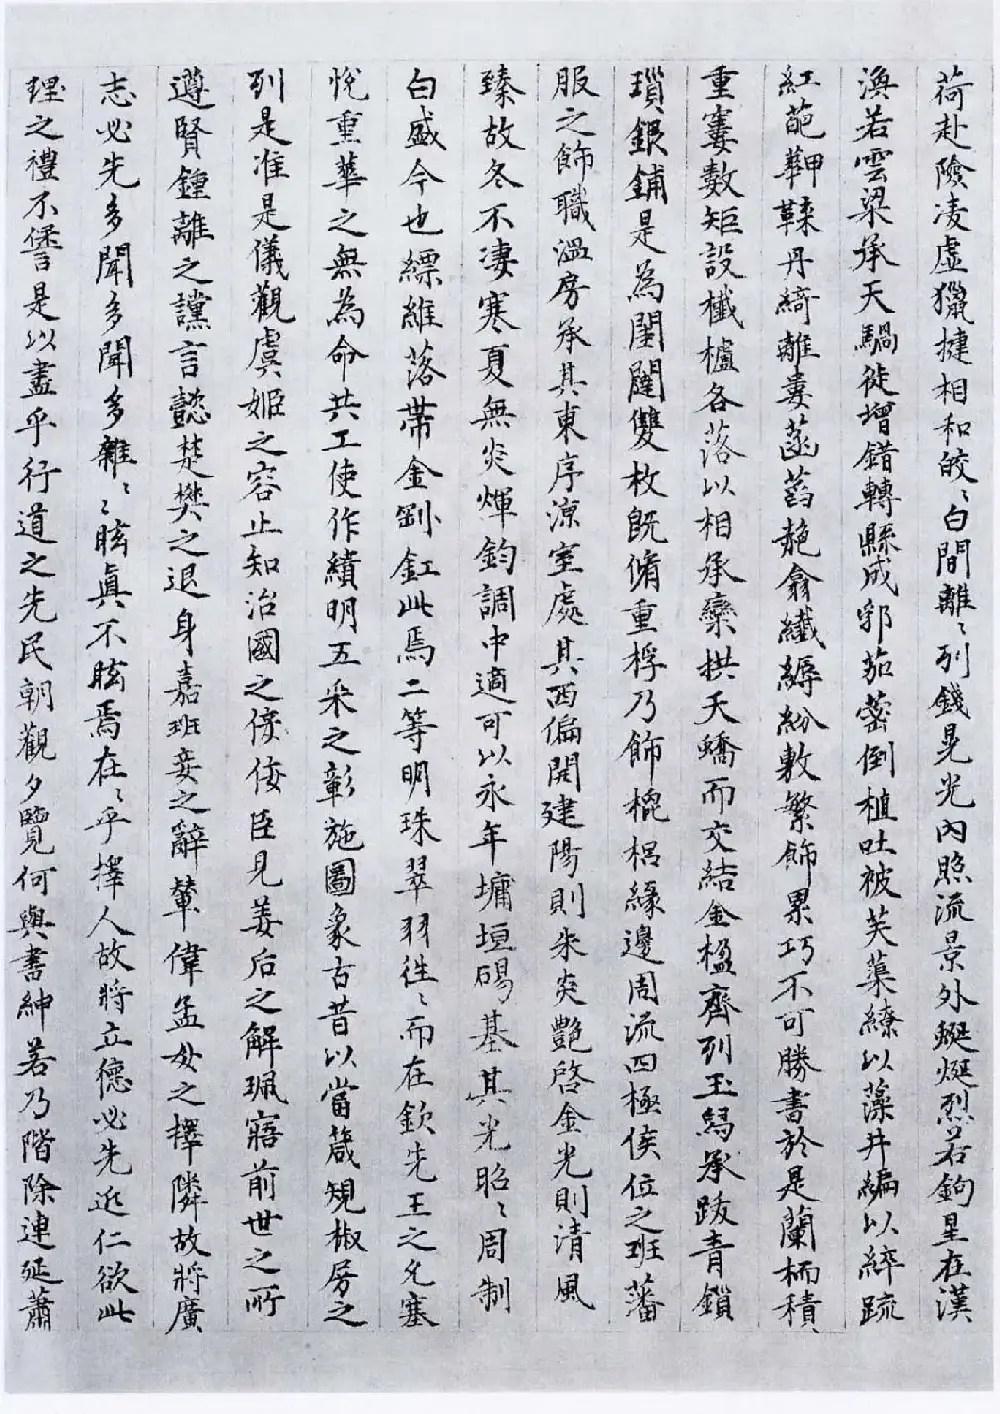 荷赴險凌虛獵揵相和皎〻白間離〻列錢晃光內照流景外烻烈若鉤星在漢
渙若雲梁承天騧徙增錯轉縣成郭茄蔤倒植吐被芙蕖繚以藻井編以綷疏
紅葩䩔鞢丹綺離婁菡萏赩翕纖縟紛敷繁飾累巧不可勝書於是蘭栭積
重窶數矩設櫼櫨各落以相承欒拱天蟜而交結金楹齊列玉舄承跋青鎖
瑣銀鋪是為閨闥雙枚既脩重桴乃飾槐梠緣邊周流四極侯位之班藩
服之飾職溫房承其東序涼室處其西偏開建陽則朱炎艷啓金光則清風
臻故冬不凄寒夏無炎煇鈞調中適可以永年墉垣碭基其光昭〻周制
白盛今也縹維落帶金釭此焉二等明珠翠羽徃〻而在欽先王之允塞
悅重華之無為命共工使作繢明五采之彰施圖象古昔以當箴規椒房之
列是准是儀觀虞姬之容止知治國之佞臣見姜后之解珮寤前世之所
遵賢鍾離之讜言懿楚樊之退身嘉班妾之辭輦偉孟母之擇隣故將廣
志必先多聞多聞多雜〻眩真不眩焉在〻乎擇人故將立德必先近仁欲此
理之禮不僁是以盡乎行道之先民朝觀夕覽何與書紳若乃階除連延蕭